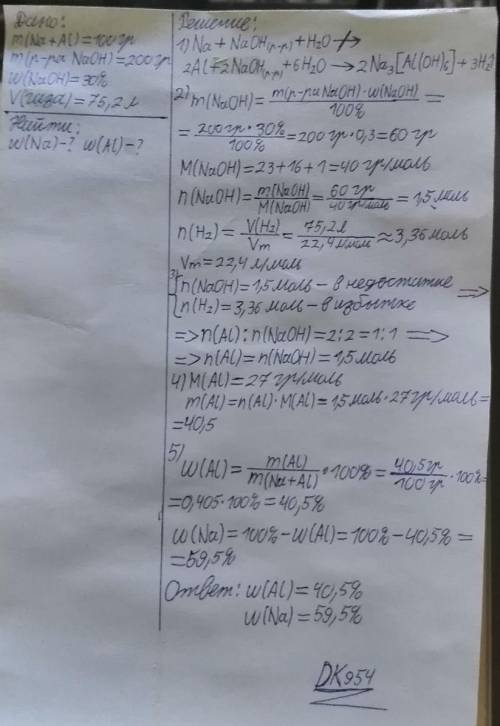 Дано:
m(Na+Al)=100гр
m(р-ра NaOH)=200гр
w(NaOH)=30%
V(газа)=75,2л
Найти:
w(Na)-? w(Al)-?
Решение:
1) Na+NaOH(р-р)+H2O ↛
2Al+2NaOH(р-р)+6H2O → 2Na3[Al(OH)6]+3H2
2) m(NaOH)=m(р-ра NaOH)·w(NaOH)/100%=
=200гр·30%/100%=200гр·0,3=60гр
M(NaOH)=23+16+1=40гр/моль
n(NaOH)=m(NaOH)/M(NaOH)=60гр/40гр/моль=1,5моль
n(H2)=V(H2)/Vm=75,2л/22,4л/моль≈3,36моль
Vm=22,4л/моль
3) {n(NaOH)=1,5моль – в недостатке =>
{n(H2)=3,36моль – в избытке
=>n(Al):n(NaOH)=2:2=1:1 =>
=>n(Al)=n(NaOH)=1,5моль
4) M(Al)=27гр/моль
m(Al)=n(Al)·M(Al)=1,5моль·27гр/моль=
=40,5
5)
w(Al)=m(Al)/m(Na+Al)·100%=40,5гр/100гр·100%=
=0,405·100%=40,5%
w(Na)=100%-w(Al)=100%-40,5%=
=59,5%
Ответ: w(Al)=40,5%
w(Na)=59,5%
DK954